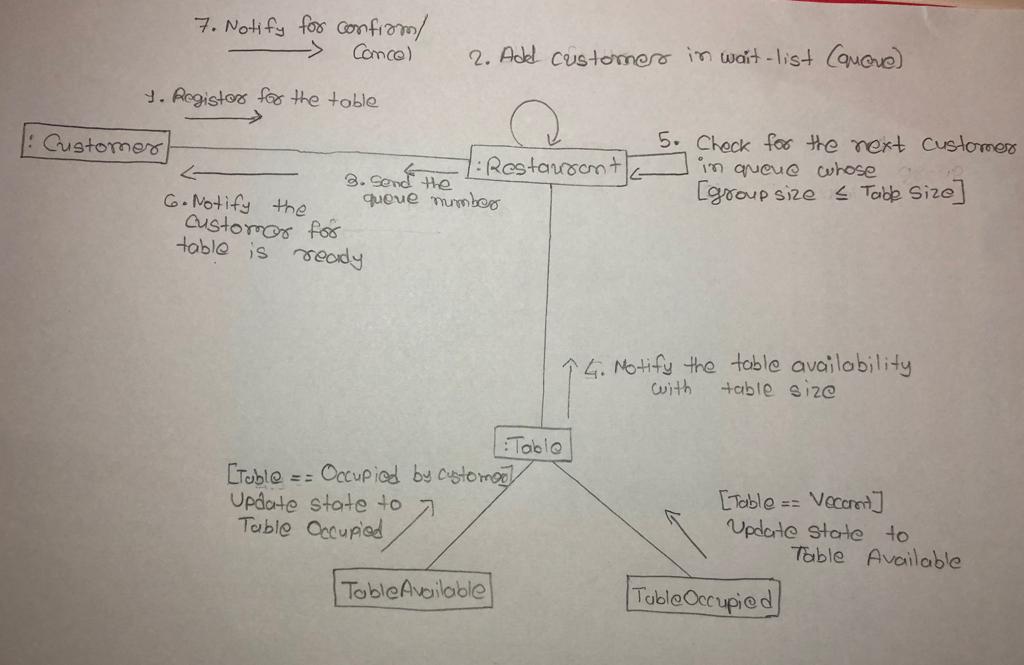 7. Notify for confirm/
Cancel
2. Add customer in wait-list (queue)
1. Register for the table
: Customer
:Restaurant
5. Check for the next customer
in queue whose
[group size ≤ Table size]
3. Send the
queue number
6. Notify the
customer for
table is ready
4. Notify the table availability
with table size
:Table
[Table == Occupied by customer]
Update state to
Table Occupied
[Table == Vacant]
Update state to
Table Available
TableAvailable
TableOccupied